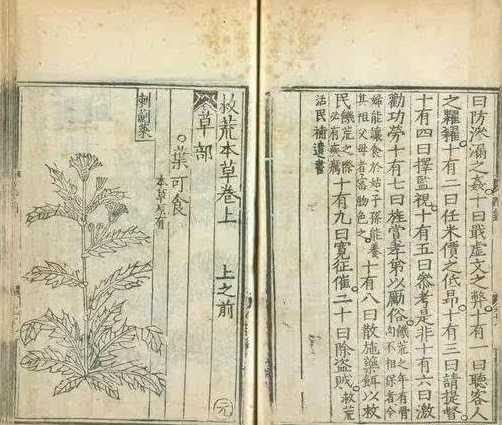 曰防滲漏之姦十曰戢虛文之弊十有一曰聽客人
之糶糴十有二曰任米價之低昂十有三曰請提督
十有四曰擇監視十有五曰參考是非十有六曰激
勸功勞十有七曰旌賞孝弟以勵俗饑荒之年有骨肉不相保者令
婦能讓食於姑子孫能養其祖父母者當物色之十有八曰散施藥餌以救
民饑荒之際必有疾癘十有九曰寬征催二十曰除盜賊救荒
活民補遺書
救荒本草卷上 上之前
草部
葉可食
本草原有
刺薊菜
元